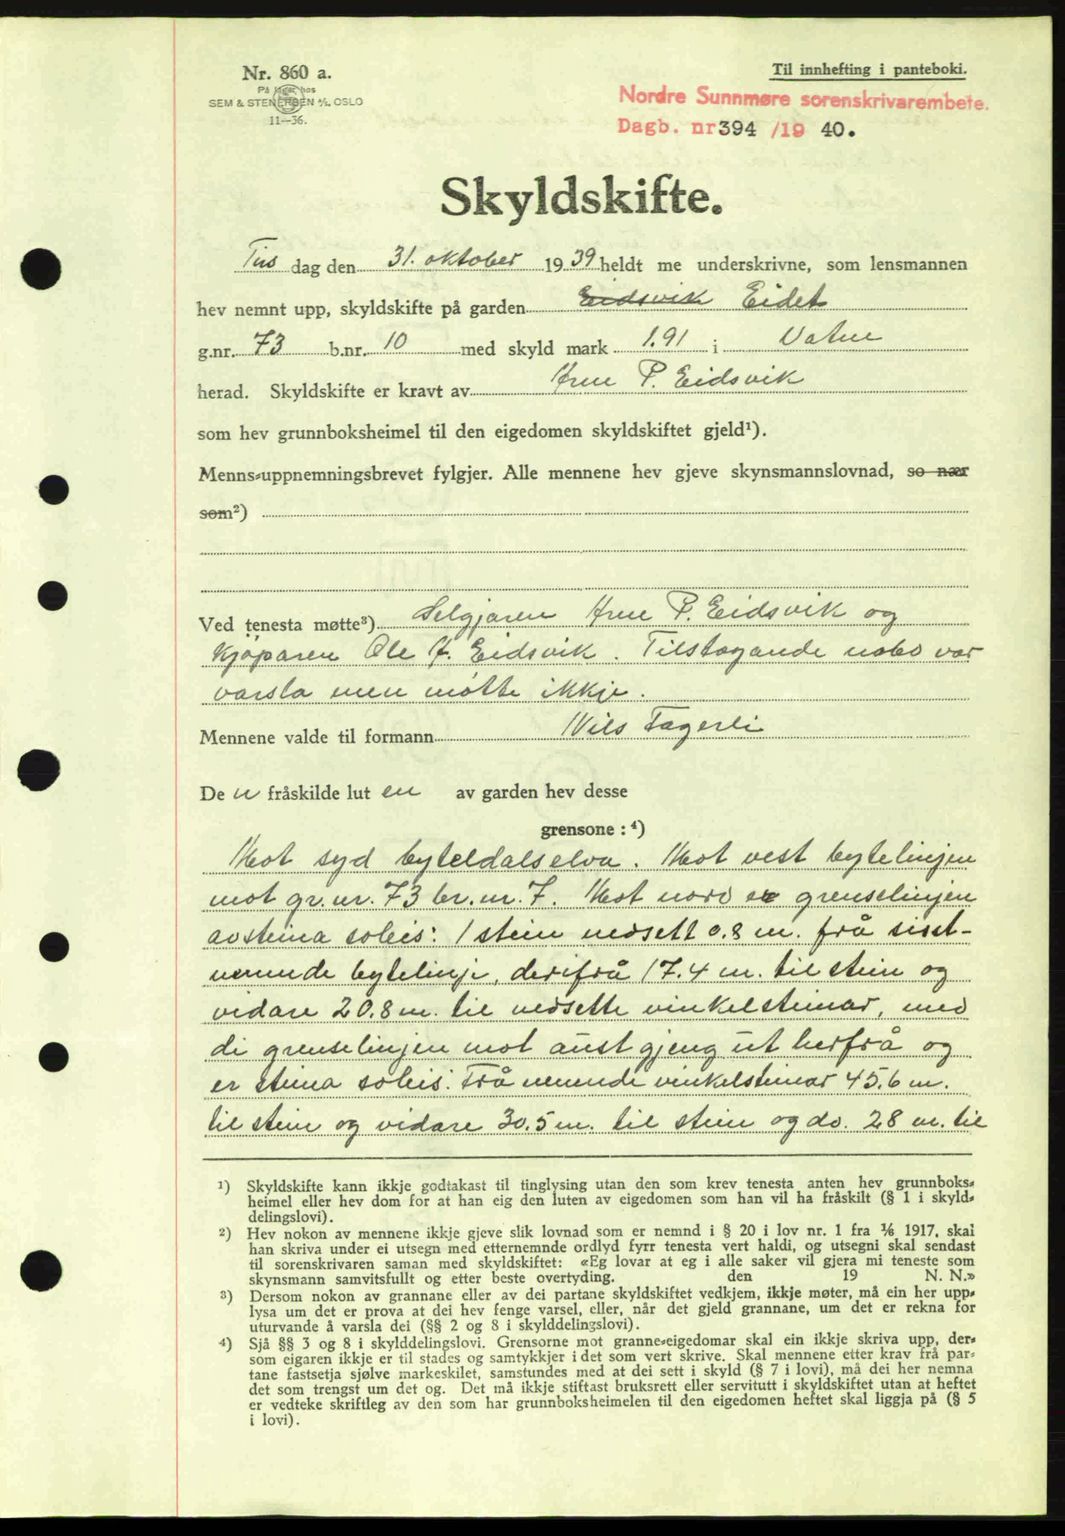 Nr. 860 a.
På lager hos
SEM & STENERSEN A/S, OSLO
11—36.
Til innhefting i panteboki.
Nordre Sunnmøre sorenskrivarembete.
Dagb. nr 394 /19 40.
Skyldskifte.
Tirs dag den 31. oktober 1939 heldt me underskrivne, som lensmannen
hev nemnt upp, skyldskifte på garden Eidsvik Eidet
g.nr. 73 b.nr. 10 med skyld mark 1.91 i Vatne
herad. Skyldskifte er kravt av Arne P. Eidsvik
som hev grunnboksheimel til den eigedomen skyldskiftet gjeld¹).
Menns-uppnemningsbrevet fylgjer. Alle mennene hev gjeve skynsmannslovnad, so nær
som²)
Ved tenesta møtte³) Selgjaren Arne P. Eidsvik og
kjøparen Ole J. Eidsvik. Tilstøyande nabo var
varsla men møtte ikkje.
Mennene valde til formann Nils Fagerli
De n fråskilde lut en av garden hev desse
grensone: ⁴)
Mot syd byteldalselva. Mot vest bytelinjen
mot gr. nr. 73 br. nr. 7. Mot nord er grenselinjen
avsteina soleis: 1 stein nedsett 0.8 m. frå sist-
nemnde bytelinje, derifrå 17.4 m. til stein og
vidare 20.8 m. til nedsette vinkelsteinar, med
di grenselinjen mot aust gjeng ut herfrå og
er steina soleis: Frå nemnde vinkelsteinar 45.6 m.
til stein og vidare 30.5 m. til stein og do. 28 m. til
¹) Skyldskifte kann ikkje godtakast til tinglysing utan den som krev tenesta anten hev grunnboks-
heimel eller hev dom for at han eig den luten av eigedomen som han vil ha fråskilt (§ 1 i skyld-
delingslovi).
²) Hev nokon av mennene ikkje gjeve slik lovnad som er nemnd i § 20 i lov nr. 1 fra 1/6 1917, skal
han skriva under ei utsegn med etternemnde ordlyd fyrr tenesta vert haldi, og utsegni skal sendast
til sorenskrivaren saman med skyldskiftet: «Eg lovar at eg i alle saker vil gjera mi teneste som
skynsmann samvitsfullt og etter beste overtyding. den 19 N. N.»
³) Dersom nokon av grannane eller av dei partane skyldskiftet vedkjem, ikkje møter, må ein her upp-
lysa um det er prova at dei hev fenge varsel, eller, når det gjeld grannane, um det er rekna for
uturvande å varsla dei (§§ 2 og 8 i skylddelingslovi).
⁴) Sjå §§ 3 og 8 i skylddelingslovi. Grensorne mot granne-eigedomar skal ein ikkje skriva upp, der-
som eigaren ikkje er til stades og samtykkjer i det som vert skrive. Skal mennene etter krav frå par-
tane fastsetja sjølve markeskilet, samstundes med at dei sett i skyld (§ 7 i lovi), må dei her nemna
det som trengst um det og. Det må ikkje stiftast bruksrett eller servitutt i skyldskiftet utan at heftet
er vedteke skriftleg av den som har grunnboksheimelen til den eigedomen heftet skal liggja på (§ 5
i lovi).